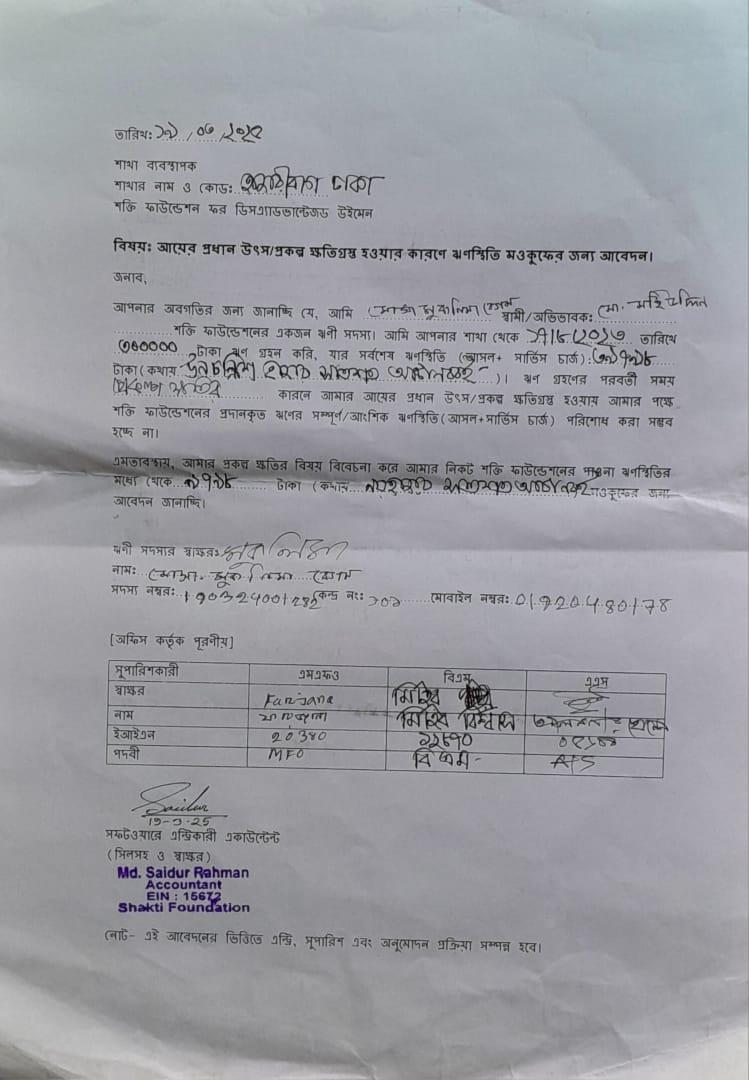 তারিখ: ১৯/০৩/২০২৫
শাখা ব্যবস্থাপক
শাখার নাম ও কোড: হাজারীবাগ ঢাকা
শক্তি ফাউন্ডেশন ফর ডিসএ্যাডভান্টেজড উইমেন
বিষয়: আয়ের প্রধান উৎস/প্রকল্প ক্ষতিগ্রস্থ হওয়ার কারণে ঋণস্থিতি মওকুফের জন্য আবেদন।
জনাব,
আপনার অবগতির জন্য জানাচ্ছি যে, আমি মোসাঃ মুকলিমা বেগম স্বামী/অভিভাবক: মো. মহিউদ্দিন
শক্তি ফাউন্ডেশনের একজন ঋনী সদস্য। আমি আপনার শাখা থেকে তারিখে
টাকা ঋণ গ্রহন করি, যার সর্বশেষ ঋণস্থিতি (আসল+ সার্ভিস চার্জ):
টাকা (কথায় )। ঋণ গ্রহণের পরবর্তী সময়
কারনে আমার আয়ের প্রধান উৎস/প্রকল্প ক্ষতিগ্রস্থ হওয়ায় আমার পক্ষে
শক্তি ফাউন্ডেশনের প্রদানকৃত ঋণের সম্পূর্ণ/আংশিক ঋণস্থিতি (আসল+সার্ভিস চার্জ) পরিশোধ করা সম্ভব
হচ্ছে না।
এমতাবস্থায়, আমার প্রকল্প ক্ষতির বিষয় বিবেচনা করে আমার নিকট শক্তি ফাউন্ডেশনের পাওনা ঋণস্থিতির
মধ্যে থেকে ৯৭৯৮ টাকা (কথায় নয় হাজার সাতশত আটানব্বই মওকুফের জন্য
আবেদন জানাচ্ছি।
ঋনী সদস্যর স্বাক্ষর: মুকলিমা
নাম: মোসাঃ মুকলিমা বেগম
সদস্য নম্বর: 190324001282 কেন্দ্র নং: ১০১ মোবাইল নম্বর: 01920480178
[অফিস কর্তৃক পূরণীয়]
সুপারিশকারী এমএফও বিএম এএস
স্বাক্ষর Farjana মিহির
নাম ফারজানা মিহির বিশ্বাস
ইআইএন 20380 ১১৮৭০
পদবী MFO বিএম- AS
Saidur
19-3-25
সফটওয়ারে এন্ট্রিকারী একাউন্টেন্ট
(সিলসহ ও স্বাক্ষর)
Md. Saidur Rahman
Accountant
EIN : 15672
Shakti Foundation
নোট- এই আবেদনের ভিত্তিতে এন্ট্রি, সুপারিশ এবং অনুমোদন প্রক্রিয়া সম্পন্ন হবে।